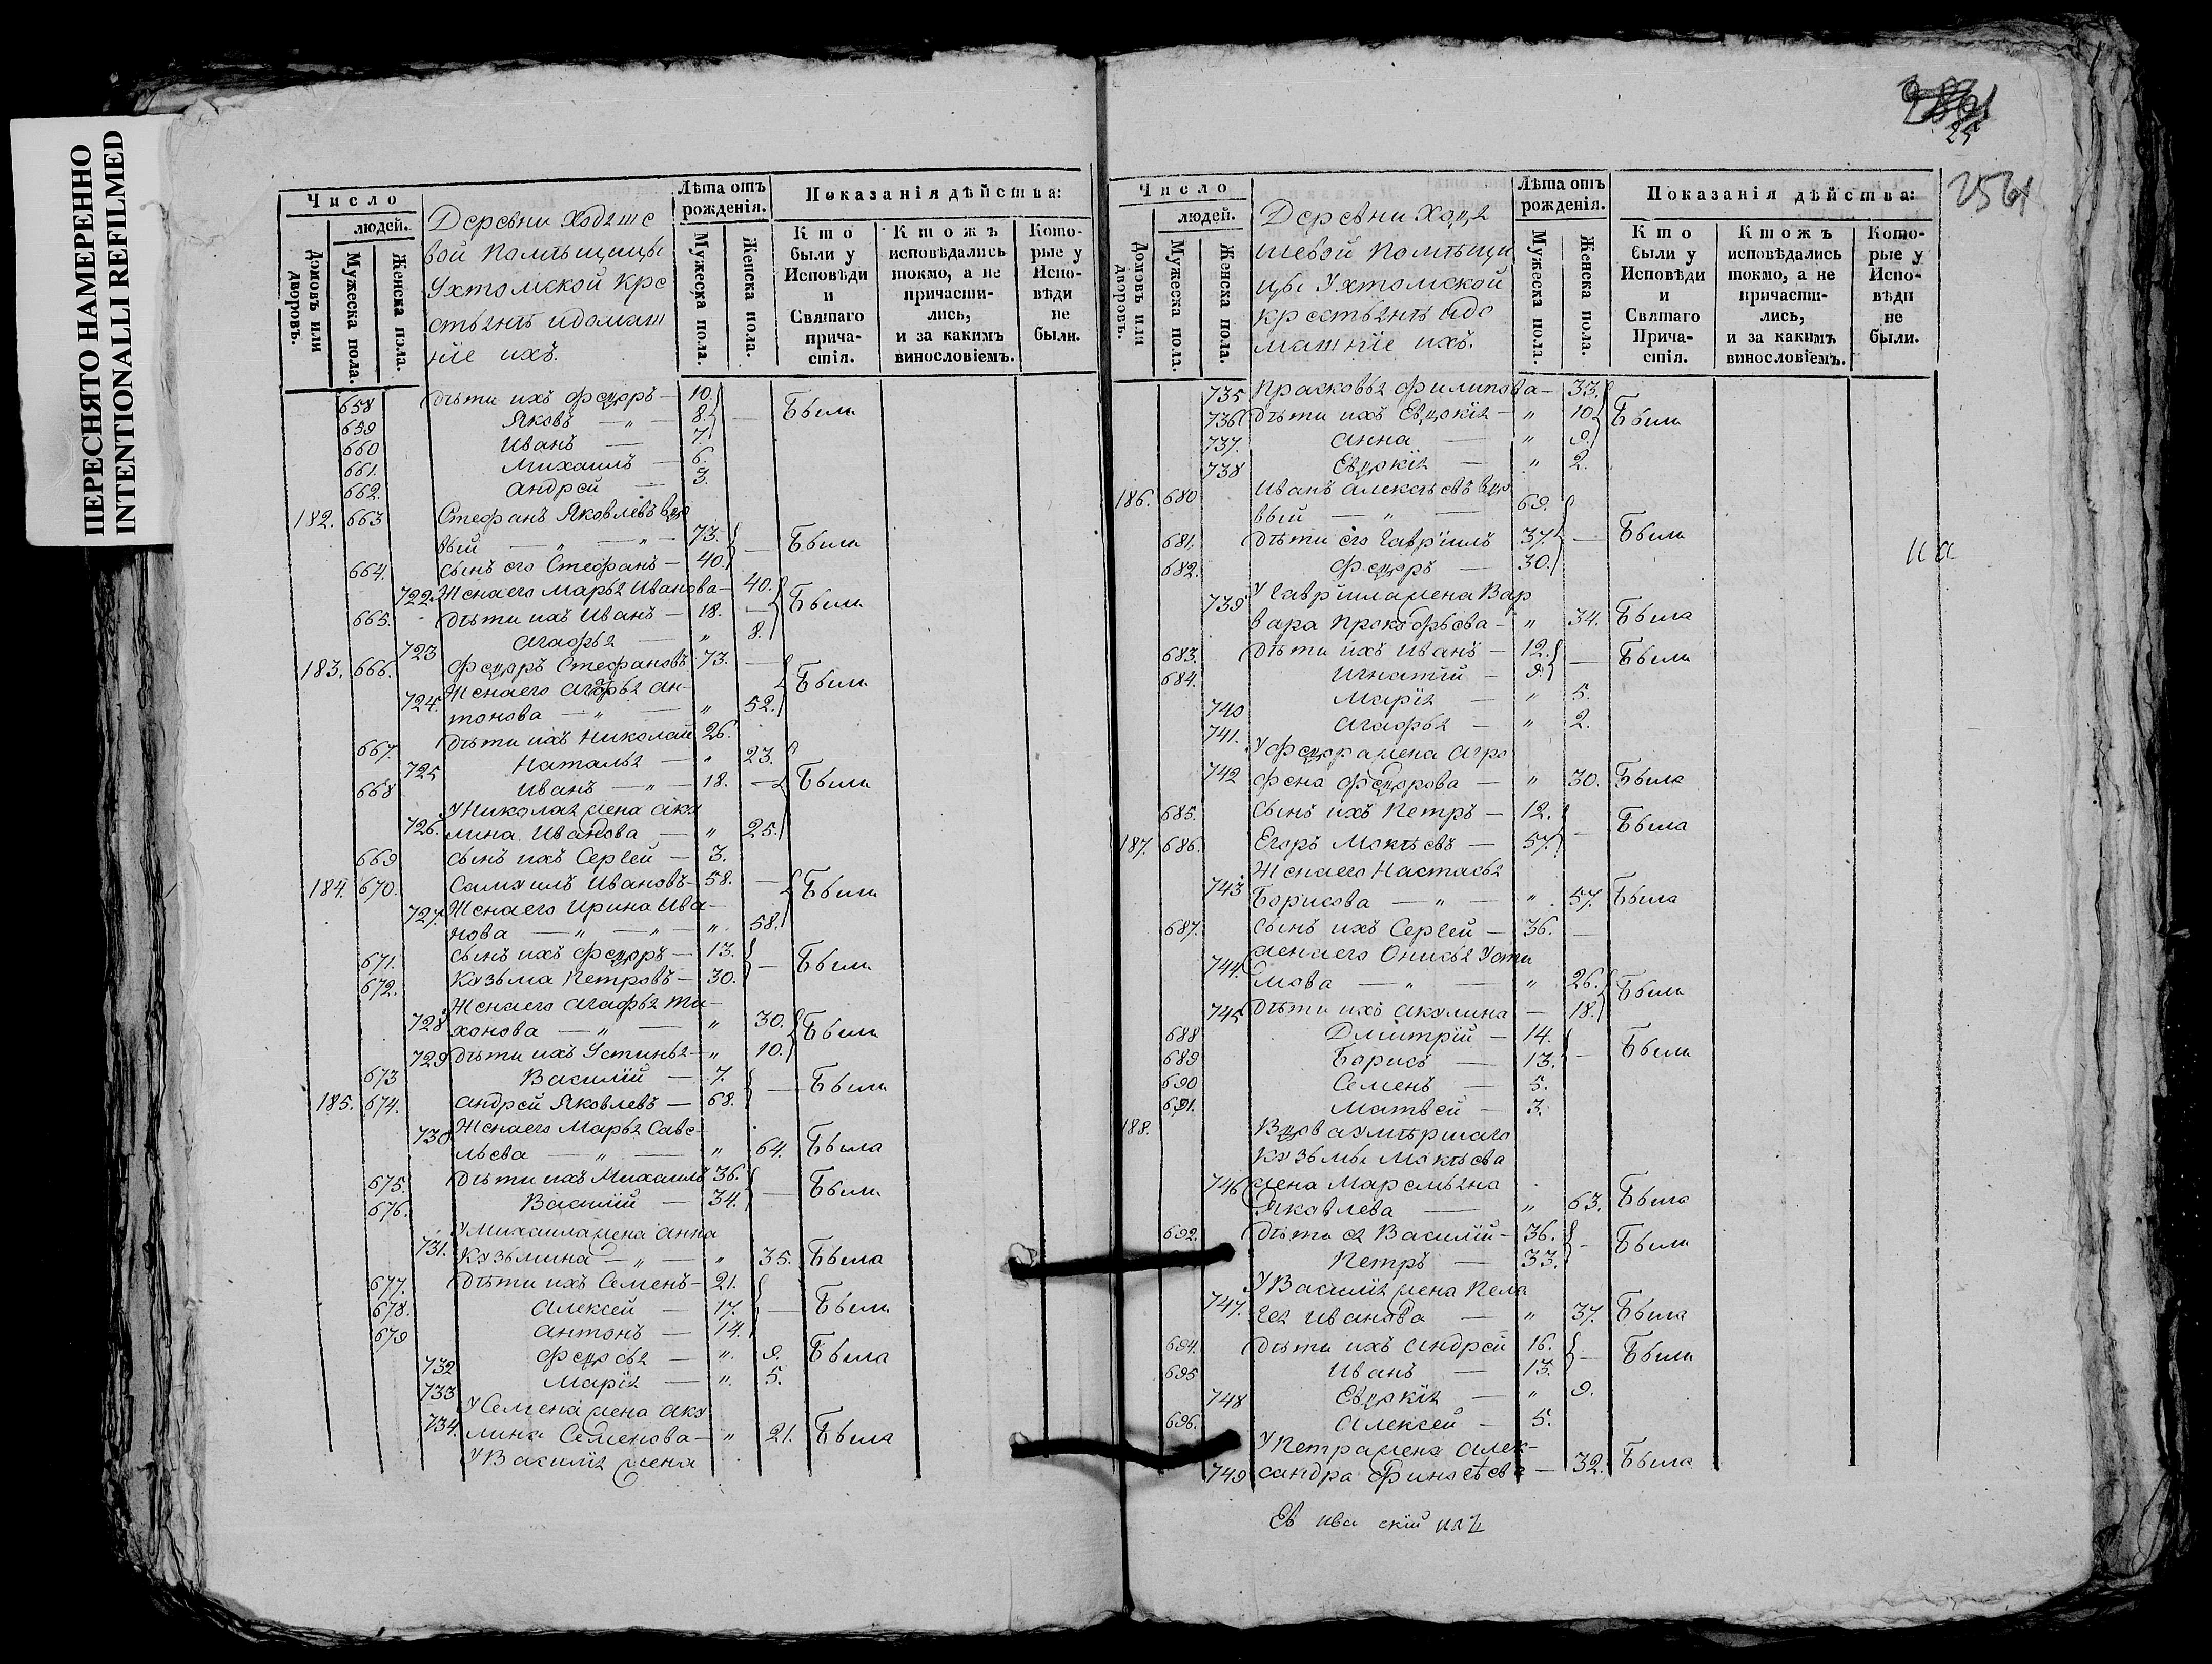 ПЕРЕСНЯТО НАМЕРЕННО
INTENTIONALLI REFILMED
25
256
Число
людей.
Домовъ или дворовъ.
Мужеска пола.
Женска пола.
Деревни Ходяше
вой Помѣщицы
Ухтомской Кре
стьянѣ идомаш
ніе ихъ.
Лѣта отъ рожденія.
Мужеска пола.
Женска пола.
Показанія дѣйства:
Кто были у Исповѣди и Святаго прича-стія.
Ктожъ исповѣдались токмо, а не причасти-лись, и за какимъ винословіемъ.
Кото-рые у Испо-вѣди не были.
658 дѣти ихъ Федоръ — 10. Были
659 Яковъ — „ — 8.
660 Иванъ — 7.
661. Михаилъ — 6.
662. Андрей — 3.
182. 663 Стефанъ Яковлевъ вдо
вый — „ — „ — 73. — Были
664. Сынъ его Стефанъ — 40.
722. Жена его Марья Иванова — 40. Были
665. дѣти ихъ Иванъ — 18. —
723 Агафья — „ 8.
183. 666. Федоръ Стефановъ 73. — Были
724. Жена его Агафья Ан-
тонова — „ — „ 52.
667. дѣти ихъ Николай 26.
725 Наталья — „ 23.
668 Иванъ — „ — 18. — Были
726. У Николая жена Аку
лина Иванова — „ 25.
669 сынъ ихъ Сергей — 3.
184. 670. Самуилъ Ивановъ — 58. — Были
727. Жена его Ирина Ива-
нова — „ — „ — „ 58.
671. сынъ ихъ Федоръ — 13. — Были
672. Кузьма Петровъ — 30.
728 Жена его Агафья Ти-
хонова — „ — „ 30. Были
729 дѣти ихъ Устинья — „ 10.
673 Василій — 7. — Были
185. 674. Андрей Яковлевъ — 68.
730 Жена его Марья Саве-
льева — „ — „ 64. Была
675. дѣти ихъ Михаилъ 36. — Были
676. Василій — 34.
731. У Михаила жена Анна
Кузьмина — „ — „ 35. Была
677. дѣти ихъ Семенъ — 21. — Были
678. Алексей — 17.
679 Антонъ — 14.
732 Федосья — „ 9. Была
733 Марія — „ 5.
734. У Семена жена Аку
лина Семенова — „ 21. Была
У Василія жена
Число
людей.
Домовъ или дворовъ.
Мужеска пола.
Женска пола.
Деревни Ходя
шевой Помѣщи
цы Ухтомской
крестьянѣ идо
машніе ихъ.
Лѣта отъ рожденія.
Мужеска пола.
Женска пола.
Показанія дѣйства:
Кто были у Исповѣди и Святаго Прича-стія.
Ктожъ исповѣдались токмо, а не причасти-лись, и за какимъ винословіемъ.
Кото-рые у Испо-вѣди не были.
735 Прасковья Филипова — 33. Были
736 дѣти ихъ Евдокія — „ 10
737. Анна — „ 9.
738 Евдокія — „ 2.
186. 680 Иванъ Алексѣевъ вдо
вый — „ — 69.
681. дѣти его Гавріилъ 37. — Были
682. Федоръ — 30.
739 У Гавріила жена Вар
вара Прокофьева — „ 34. Была
683. дѣти ихъ Иванъ — 12. — Были
684. Игнатій — 9.
740 Марія — „ 5.
741. Агафья — „ 2.
742 У Федора жена Агро
фена Федорова — „ 30. Была
685. Сынъ ихъ Петръ — 12. — Была
187. 686. Егоръ Мокѣевъ — 57.
743 Жена его Настасья
Борисова — „ — „ 57. Была
687. сынъ ихъ Сергей — 36. —
744. жена его Онисья Усти
мова — „ — „ 26. Были
745 дѣти ихъ Акулина — 18.
688 Дмитрій — 14. — Были
689 Борисъ — 13.
690 Семенъ — 5.
691. Матвей — 3.
188. Вдова умѣршаго
Кузьмы Мокѣева
746 жена Маремьяна
Яковлева — „ 63. Была
692. дѣти ея Василій — 36. — Были
Петръ — 33.
747. У Василія жена Пела
гея Иванова — „ 37. Была
694. дѣти ихъ Андрей 16. — Были
695 Иванъ — 13.
748 Евдокія — „ 9.
696. Алексей — 5.
749 У Петра жена Алек-
сандра Финогѣева — 32. Была